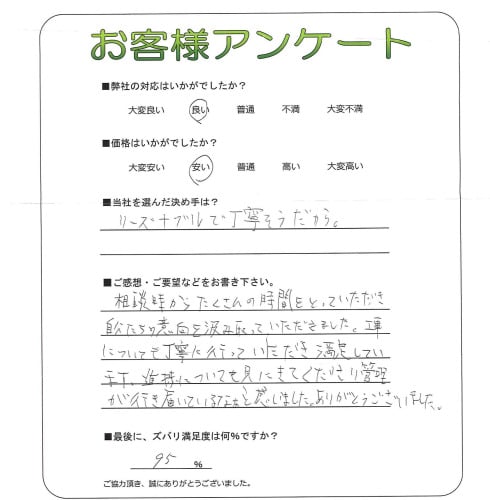 お客様アンケート
■弊社の対応はいかがでしたか?
大変良い 良い 普通 不満 大変不満
■価格はいかがでしたか?
大変安い 安い 普通 高い 大変高い
■当社を選んだ決め手は?
リーズナブルで丁寧そうだから。
■ご感想・ご要望などをお書き下さい。
相談時からたくさんの時間をとっていただき
自分たちの意向を汲み取っていただきました。工事
についても丁寧に行っていただき満足してい
ます。進捗についても見にきてくださり管理
が行き届いているなぁと感じました。ありがとうございました。
■最後に、ズバリ満足度は何%ですか?
95 %
ご協力頂き、誠にありがとうございました。